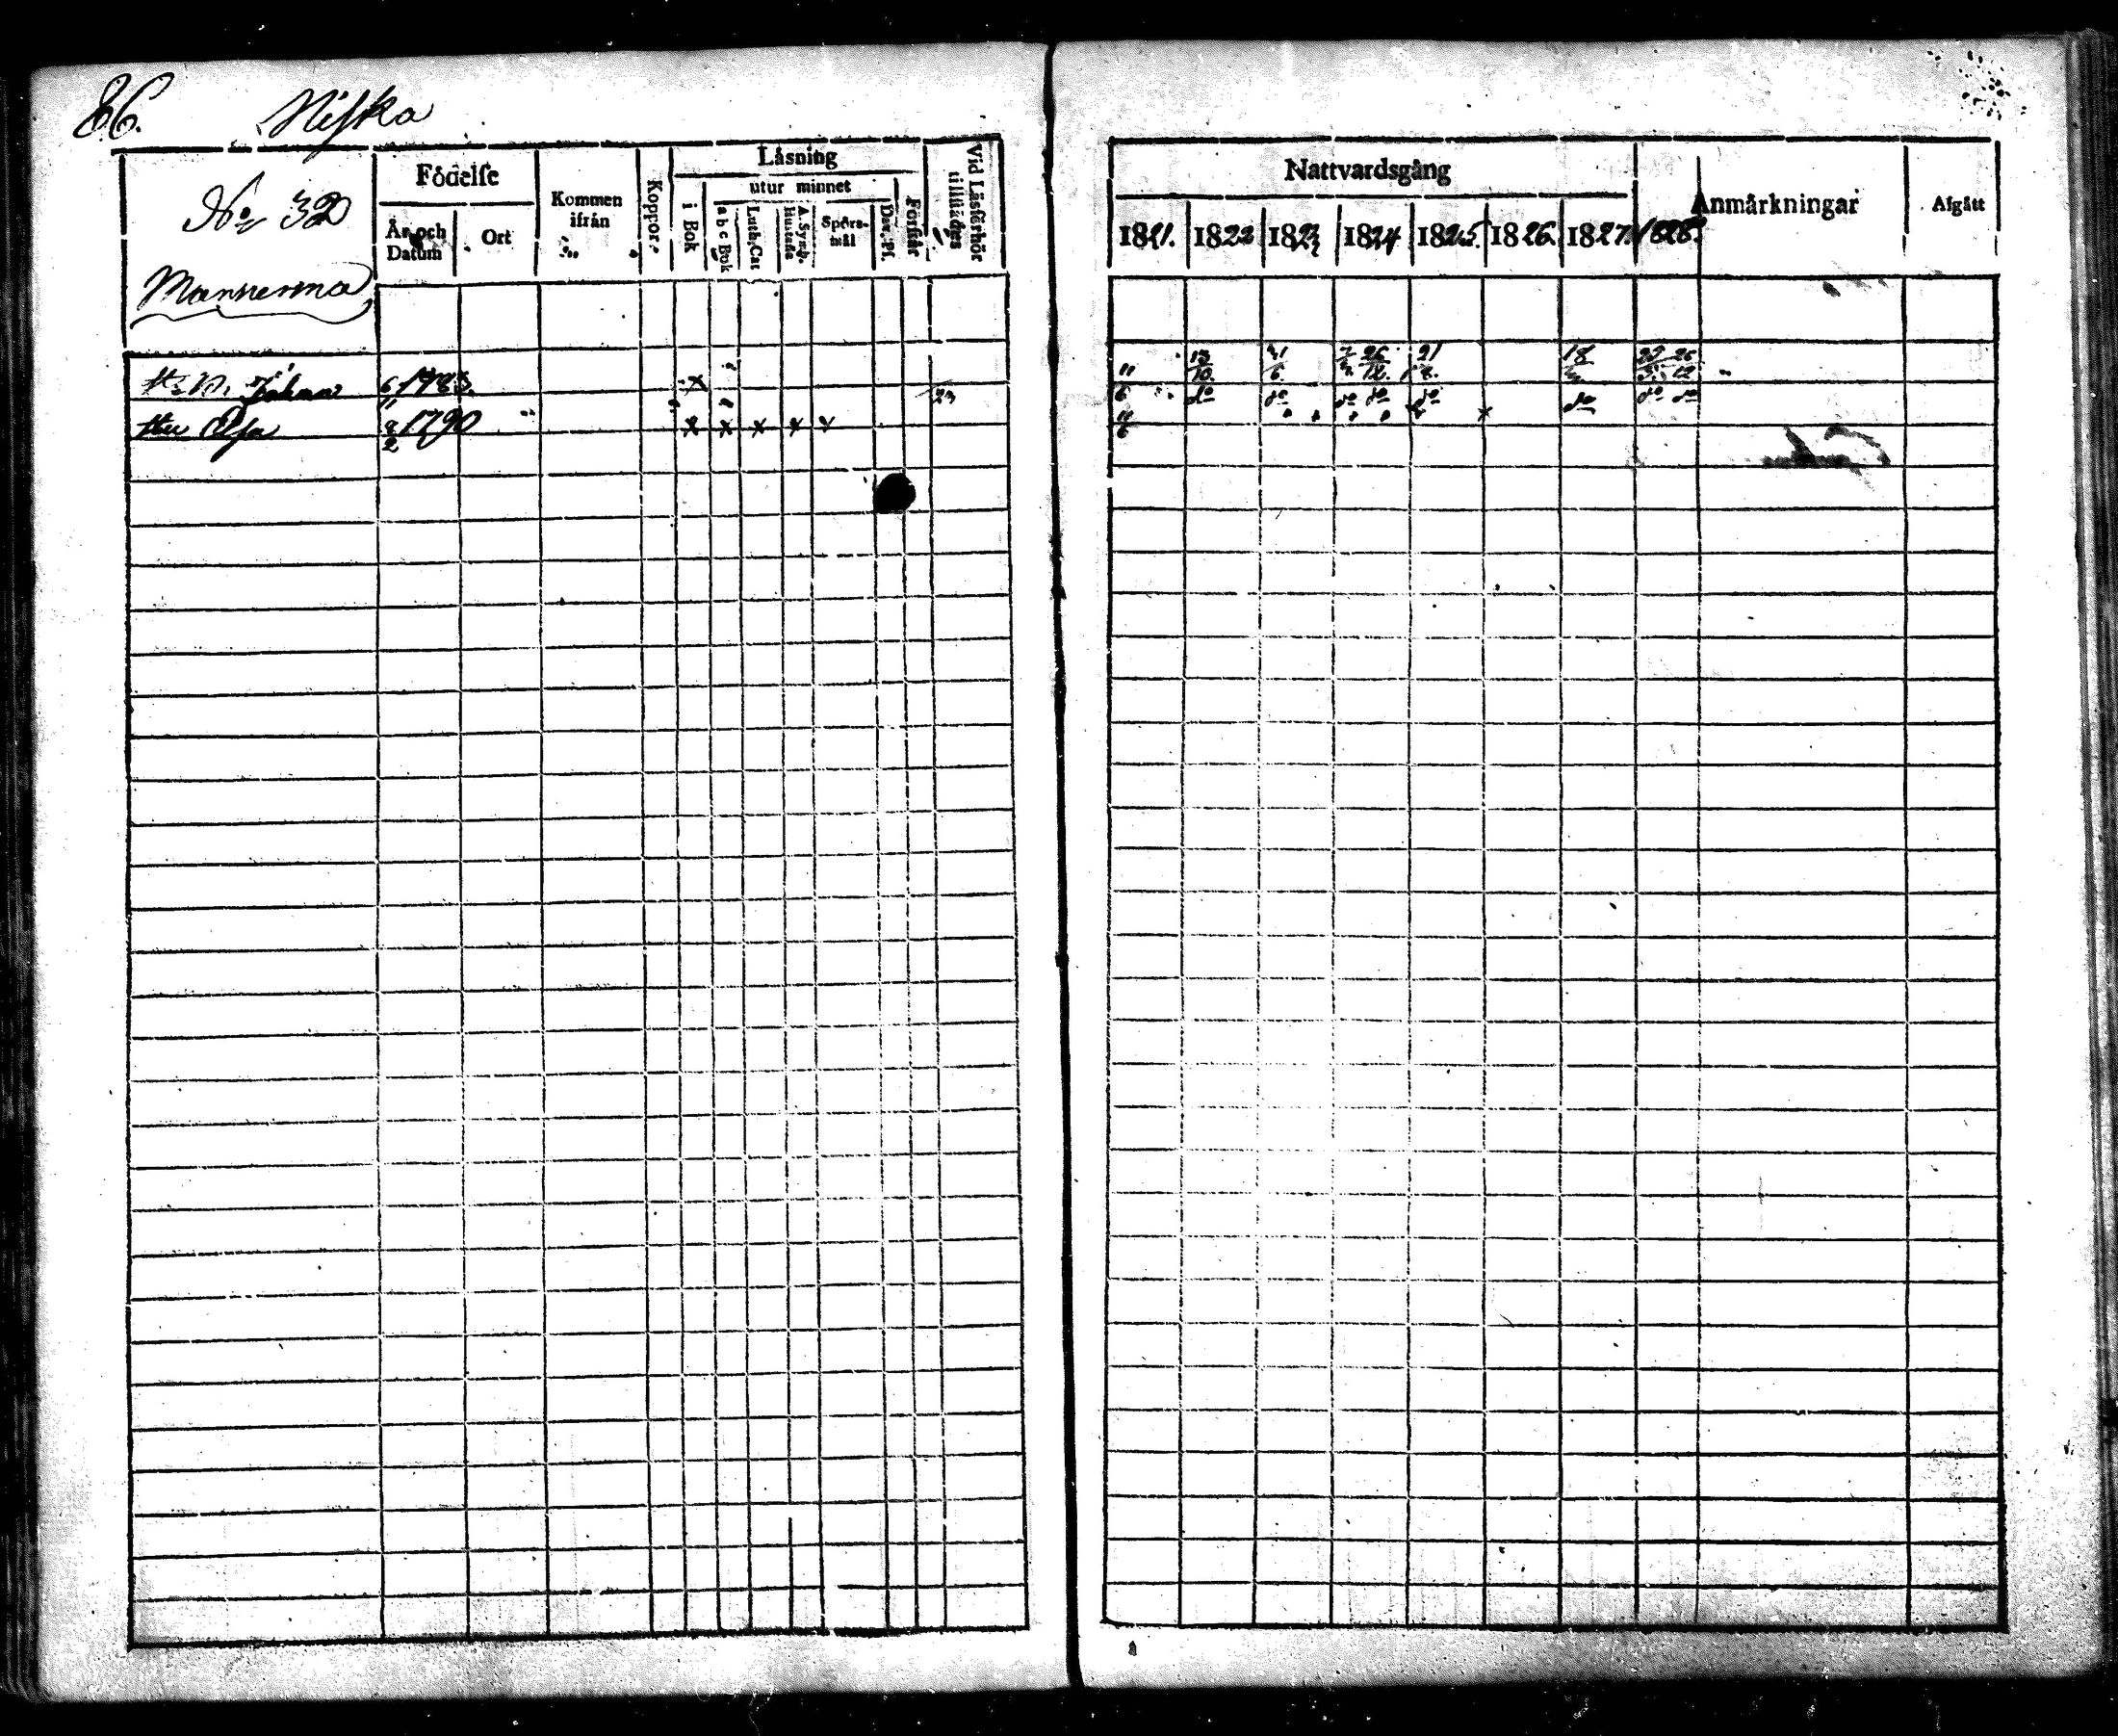 86. Niska
No 32
Mannerma
Födelse
År och Datum
Ort
Kommen ifrån
Koppor
Läsning
i Bok
utur minnet
a b c Bok
Luth. Cat
A. Symb. Hustafla
Spörsmål
Dav. Ps.
Förstår
Vid Läsförhör tillstädes
Nattvardsgång
1821. 1822 1823 1824 1825. 1826. 1827. 1828.
Anmärkningar
Afgått
Johan 6/11 1783. x
Hu Elsa 8/2 1790 x x x x x
11/6 13/10 21 26/12. 21/8. 18
11/6 do do do do do do do do